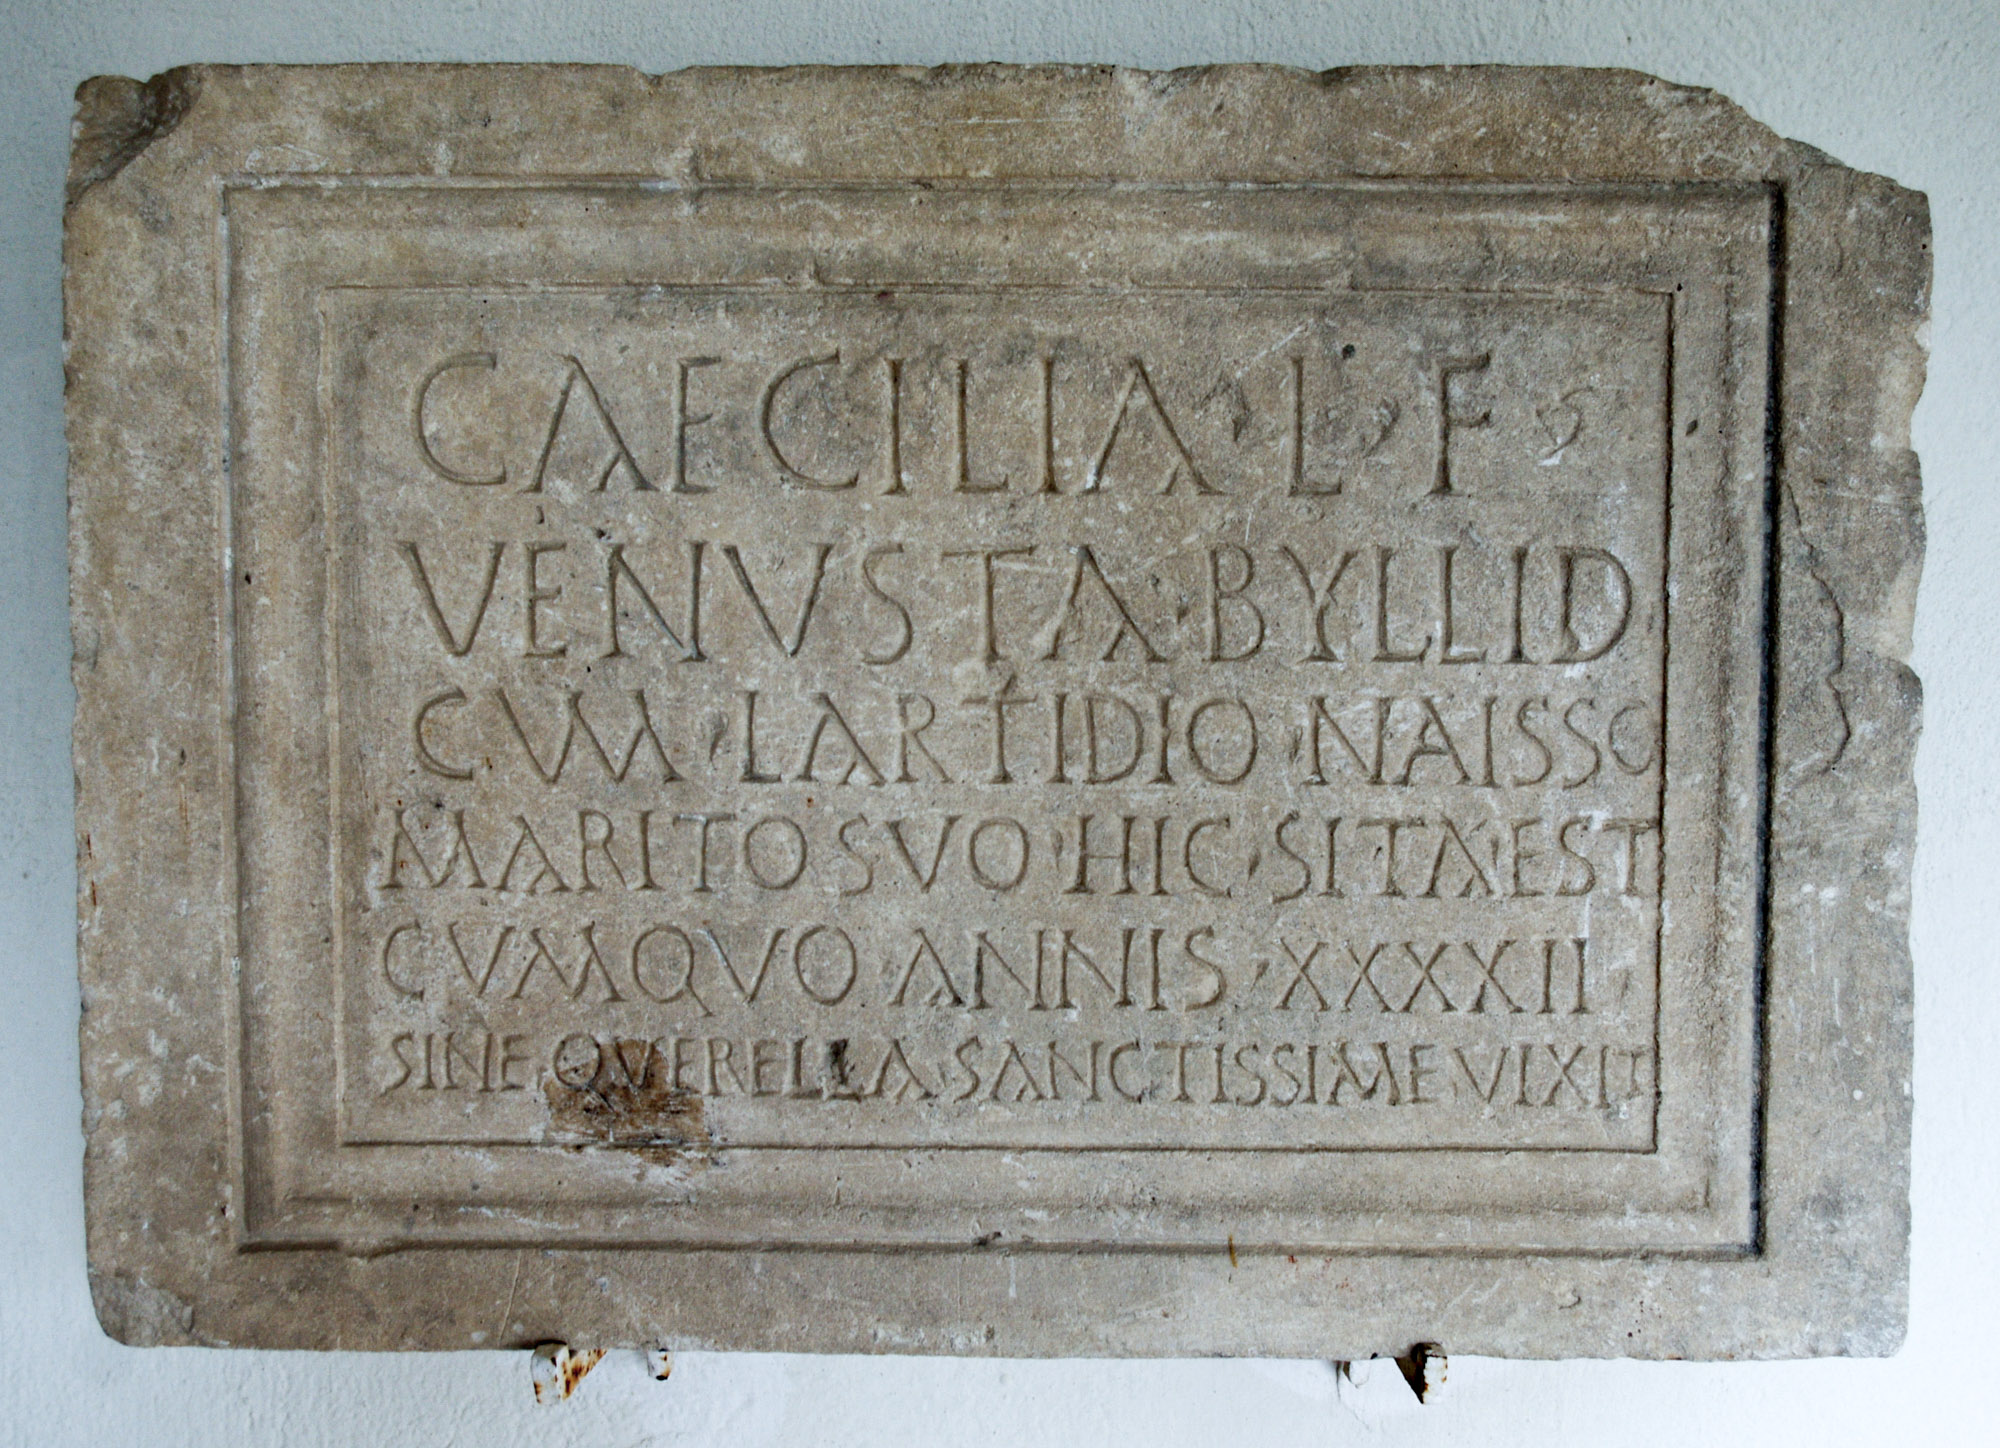 CAECILIA · L · F ·
VENUSTA · BYLLID
CVM · LARTIDIO · NAISSO
MARITO SVO · HIC · SITA EST
CVM QVO · ANNIS · XXXXII
SINE QVERELLA · SANCTISSIME VIXIT